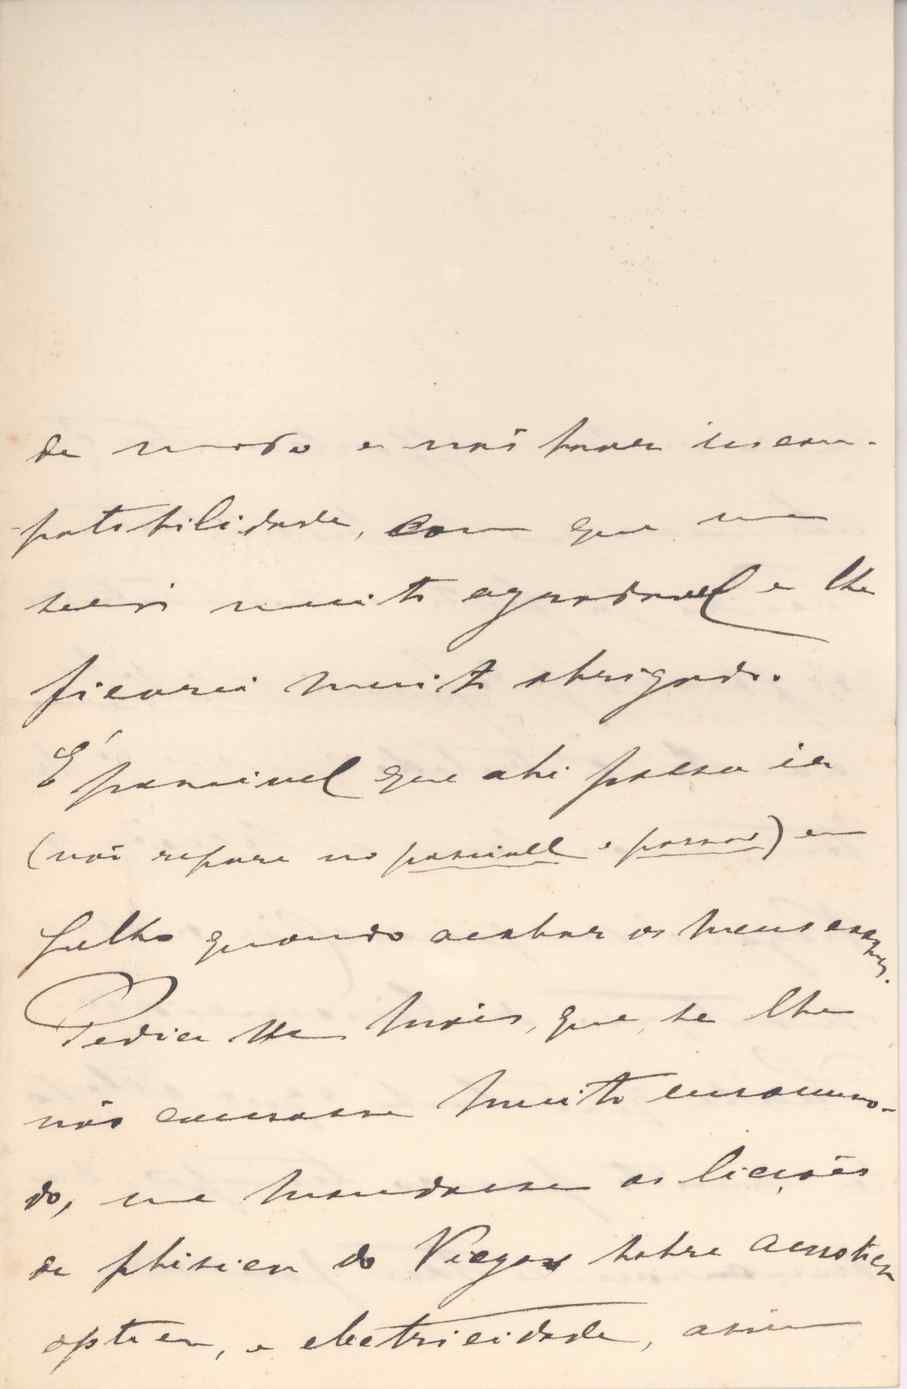 de modo a não haver incom-
patibilidade, com que me
seria muito agradavel e lhe
ficaria muito obrigado.
É possivel que ahi passe ia
(não repare no possivell e passar) em
Julho quando acabar os meus exames.
Pedia lhe mais, que, se lhe
não causasse muito encommo-
do, me mandasse as licções
de phisica do Viegas sobre acustica
optica, e electricidade, assim